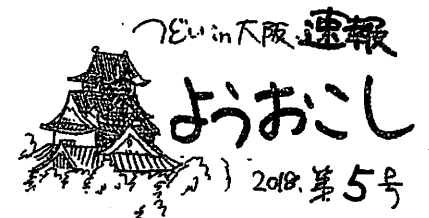 つどい in 大阪 速報
ようおこし
2018. 第5号